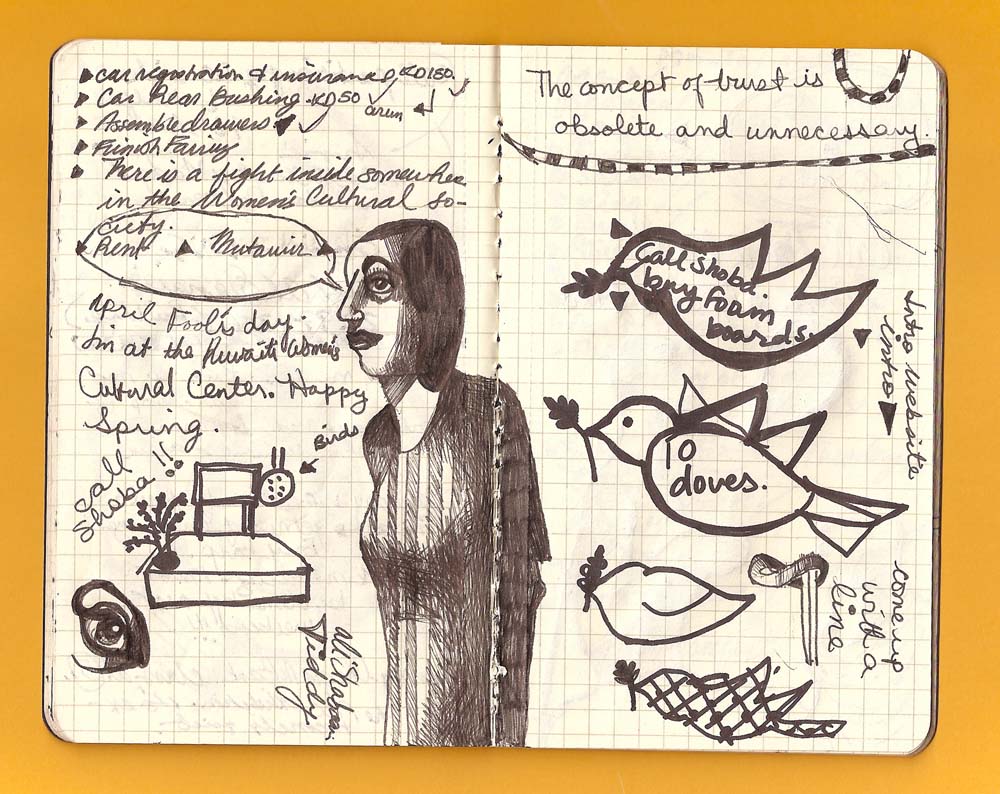 car registration & insurance KD150.
Car Rear Bushing - KD50
arun
Assemble drawers
Finish
There is a fight inside somewhere
in the Women's Cultural so-
ciety.
Rent
April Fool's day.
I'm at the Kuwaiti Women's
Cultural Center. Happy
Spring.
Birds
Call
Shoba!!
Ali Shaboon
Tiddy
The concept of trust is
obsolete and unnecessary.
Call Shoba.
buy foam
boards.
Into website
intro
10
doves.
come up
with a
line